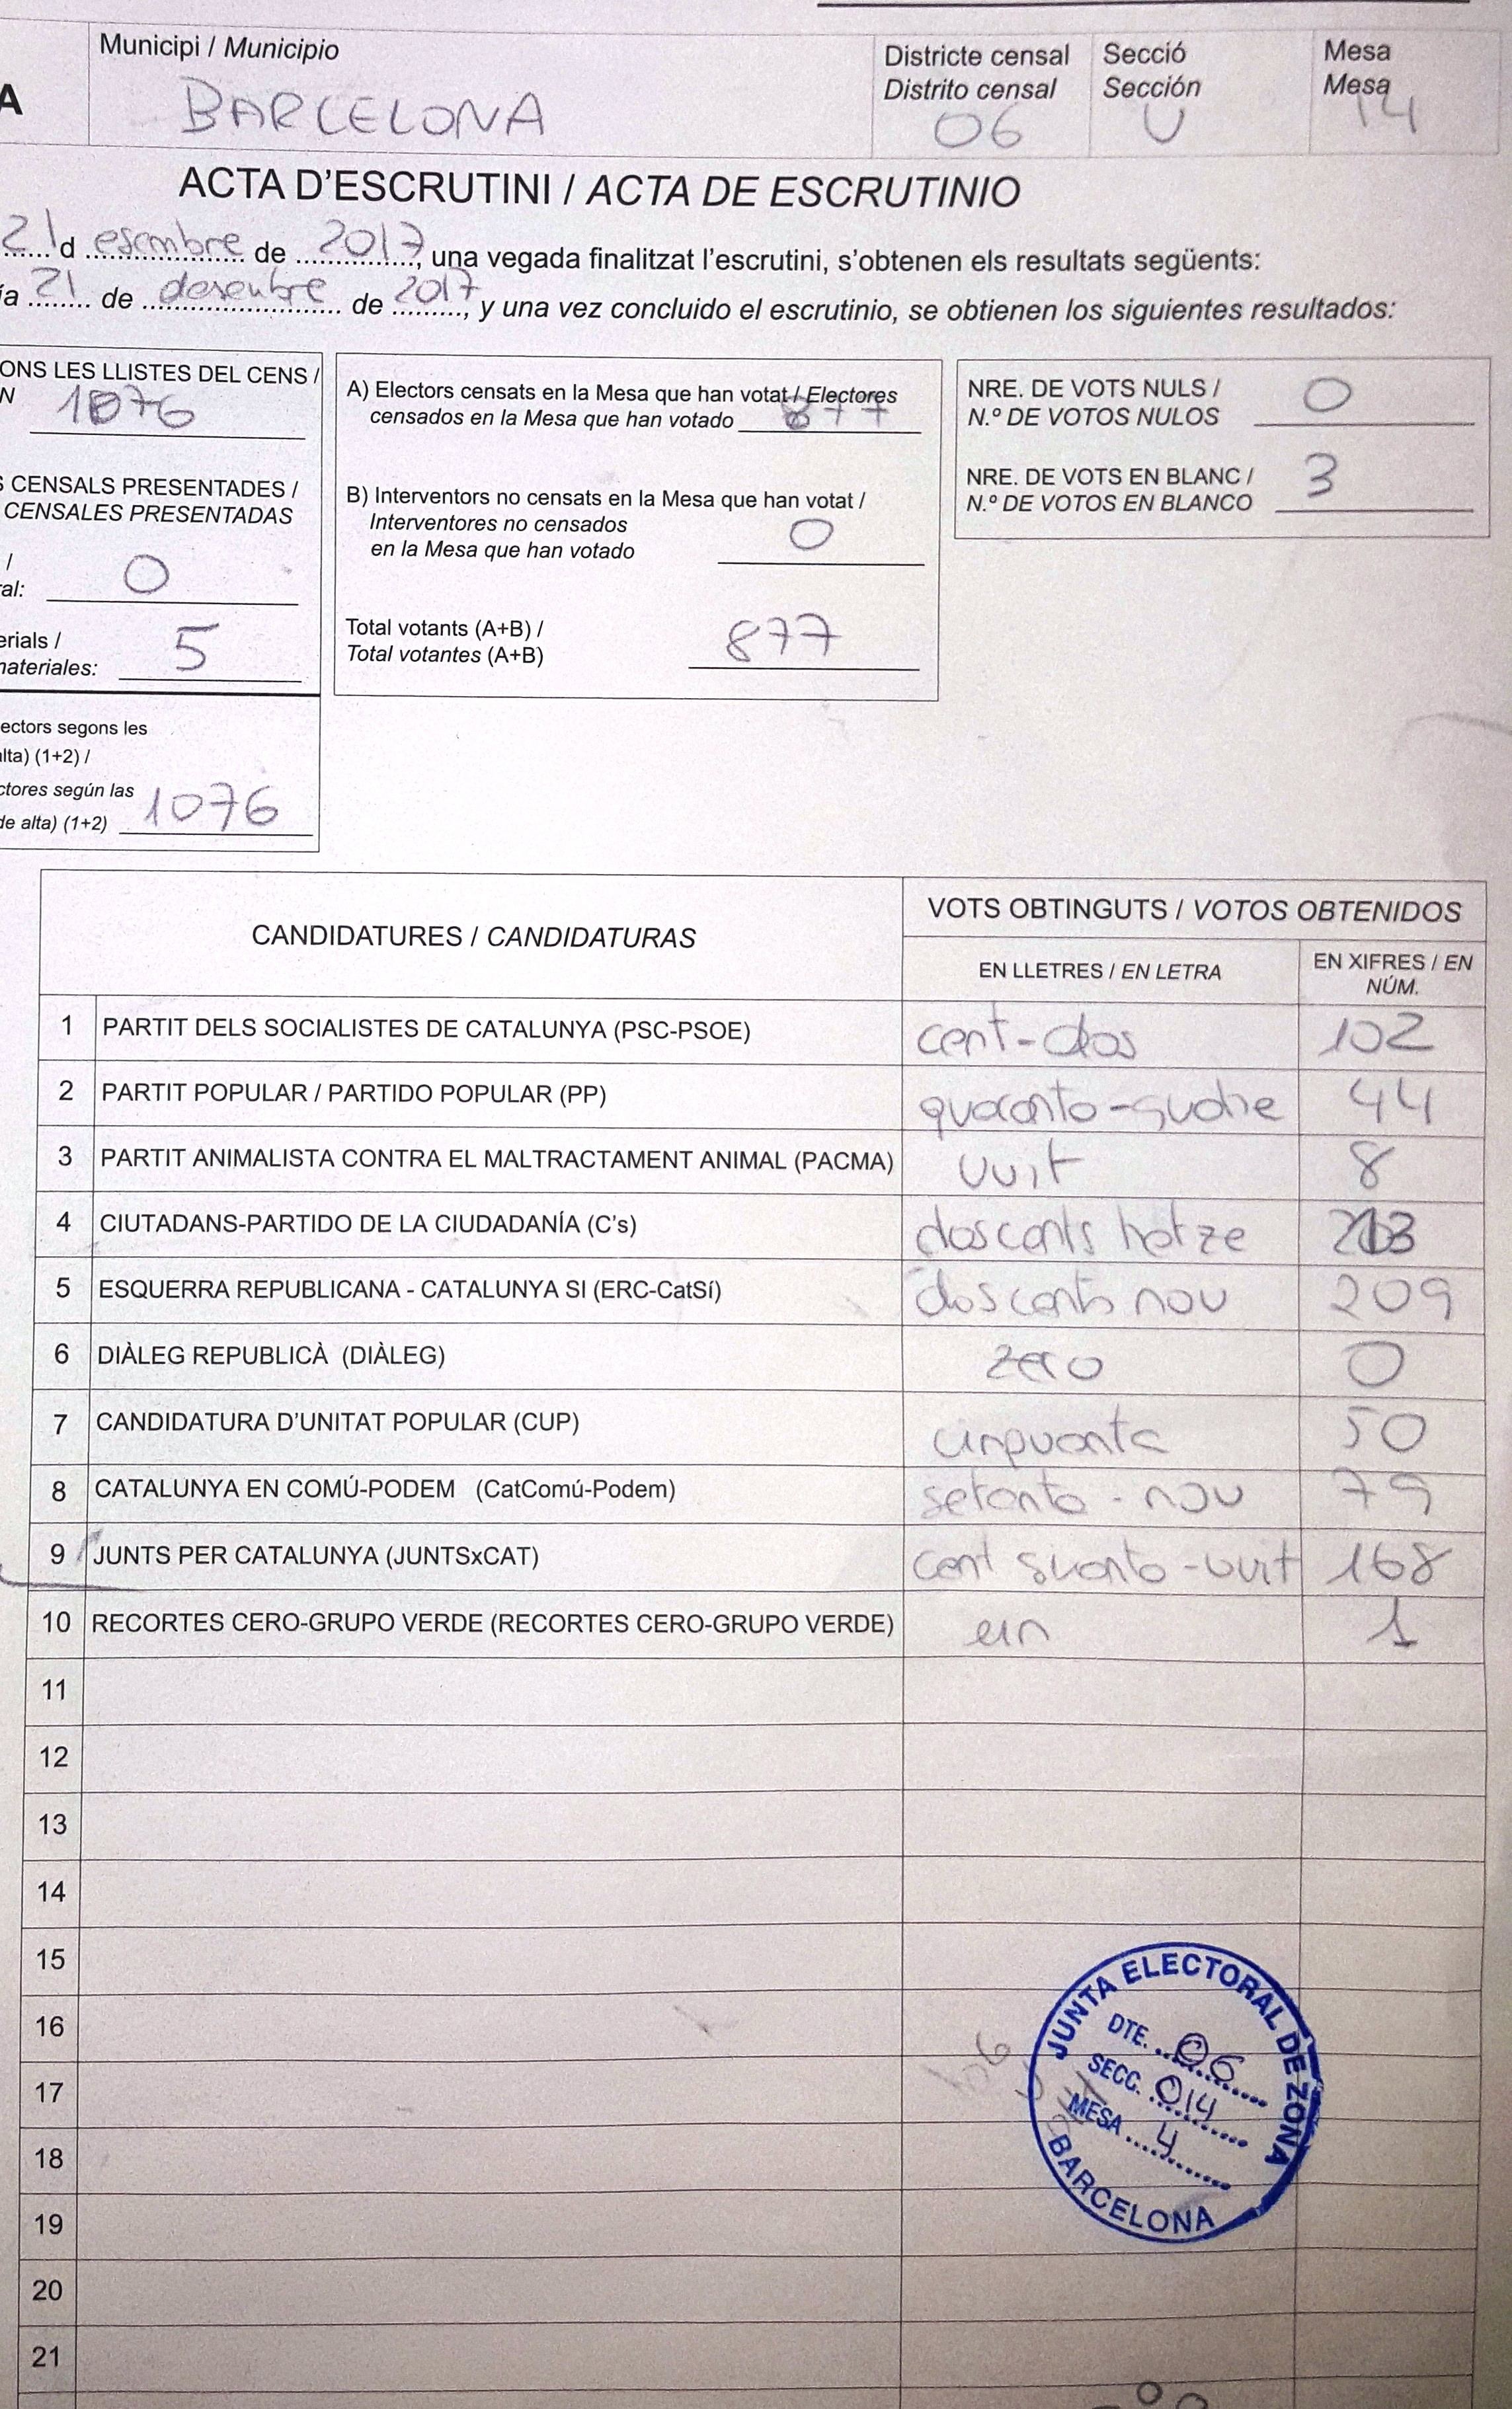 A
Municipi / Municipio
BARCELONA
Districte censal
Distrito censal
06
Secció
Sección
U
Mesa
Mesa
ACTA D'ESCRUTINI / ACTA DE ESCRUTINIO
21 d desembre de 2017, una vegada finalitzat l'escrutini, s'obtenen els resultats següents:
ía 21 de desembre de 2017, y una vez concluido el escrutinio, se obtienen los siguientes resultados:
ONS LES LLISTES DEL CENS /
N 1076
S CENSALS PRESENTADES /
CENSALES PRESENTADAS
/
ral: 0
erials /
materiales: 5
ectors segons les
lta) (1+2) /
ctores según las
de alta) (1+2) 1076
A) Electors censats en la Mesa que han votat / Electores
censados en la Mesa que han votado 877
B) Interventors no censats en la Mesa que han votat /
Interventores no censados
en la Mesa que han votado 0
Total votants (A+B) /
Total votantes (A+B) 877
NRE. DE VOTS NULS /
N.º DE VOTOS NULOS 0
NRE. DE VOTS EN BLANC /
N.º DE VOTOS EN BLANCO 3
CANDIDATURES / CANDIDATURAS
VOTS OBTINGUTS / VOTOS OBTENIDOS
EN LLETRES / EN LETRA
EN XIFRES / EN NÚM.
1 PARTIT DELS SOCIALISTES DE CATALUNYA (PSC-PSOE) cent-dos 102
2 PARTIT POPULAR / PARTIDO POPULAR (PP) 44
3 PARTIT ANIMALISTA CONTRA EL MALTRACTAMENT ANIMAL (PACMA) vuit 8
4 CIUTADANS-PARTIDO DE LA CIUDADANÍA (C's) 213
5 ESQUERRA REPUBLICANA - CATALUNYA SI (ERC-CatSí) doscents nou 209
6 DIÀLEG REPUBLICÀ (DIÀLEG) zero 0
7 CANDIDATURA D'UNITAT POPULAR (CUP) cinquanta 50
8 CATALUNYA EN COMÚ-PODEM (CatComú-Podem) setanta-nou 79
9 JUNTS PER CATALUNYA (JUNTSxCAT) cent suanta-vuit 168
10 RECORTES CERO-GRUPO VERDE (RECORTES CERO-GRUPO VERDE) un 1
11
12
13
14
15
16
17
18
19
20
21
JUNTA ELECTORAL DE ZONA
DTE. 06
SECC. 014
MESA 4
BARCELONA